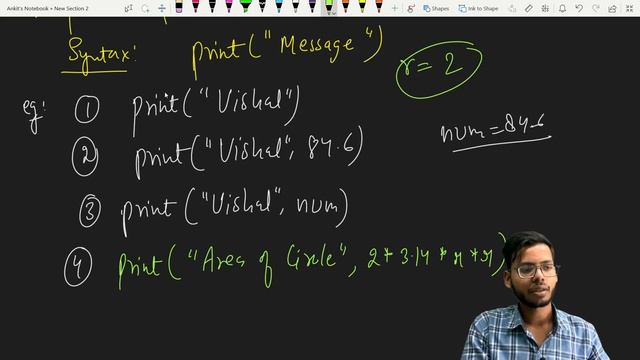 Ankit's Notebook » New Section 2
Share
Ink to Shape
Ink to Text
Syntax: print("Message")
r = 2
eg: ① print("Vishal")
num = 84.6
② print("Vishal", 84.6)
③ print("Vishal", num)
④ print("Area of Circle", 2*3.14*r*r)